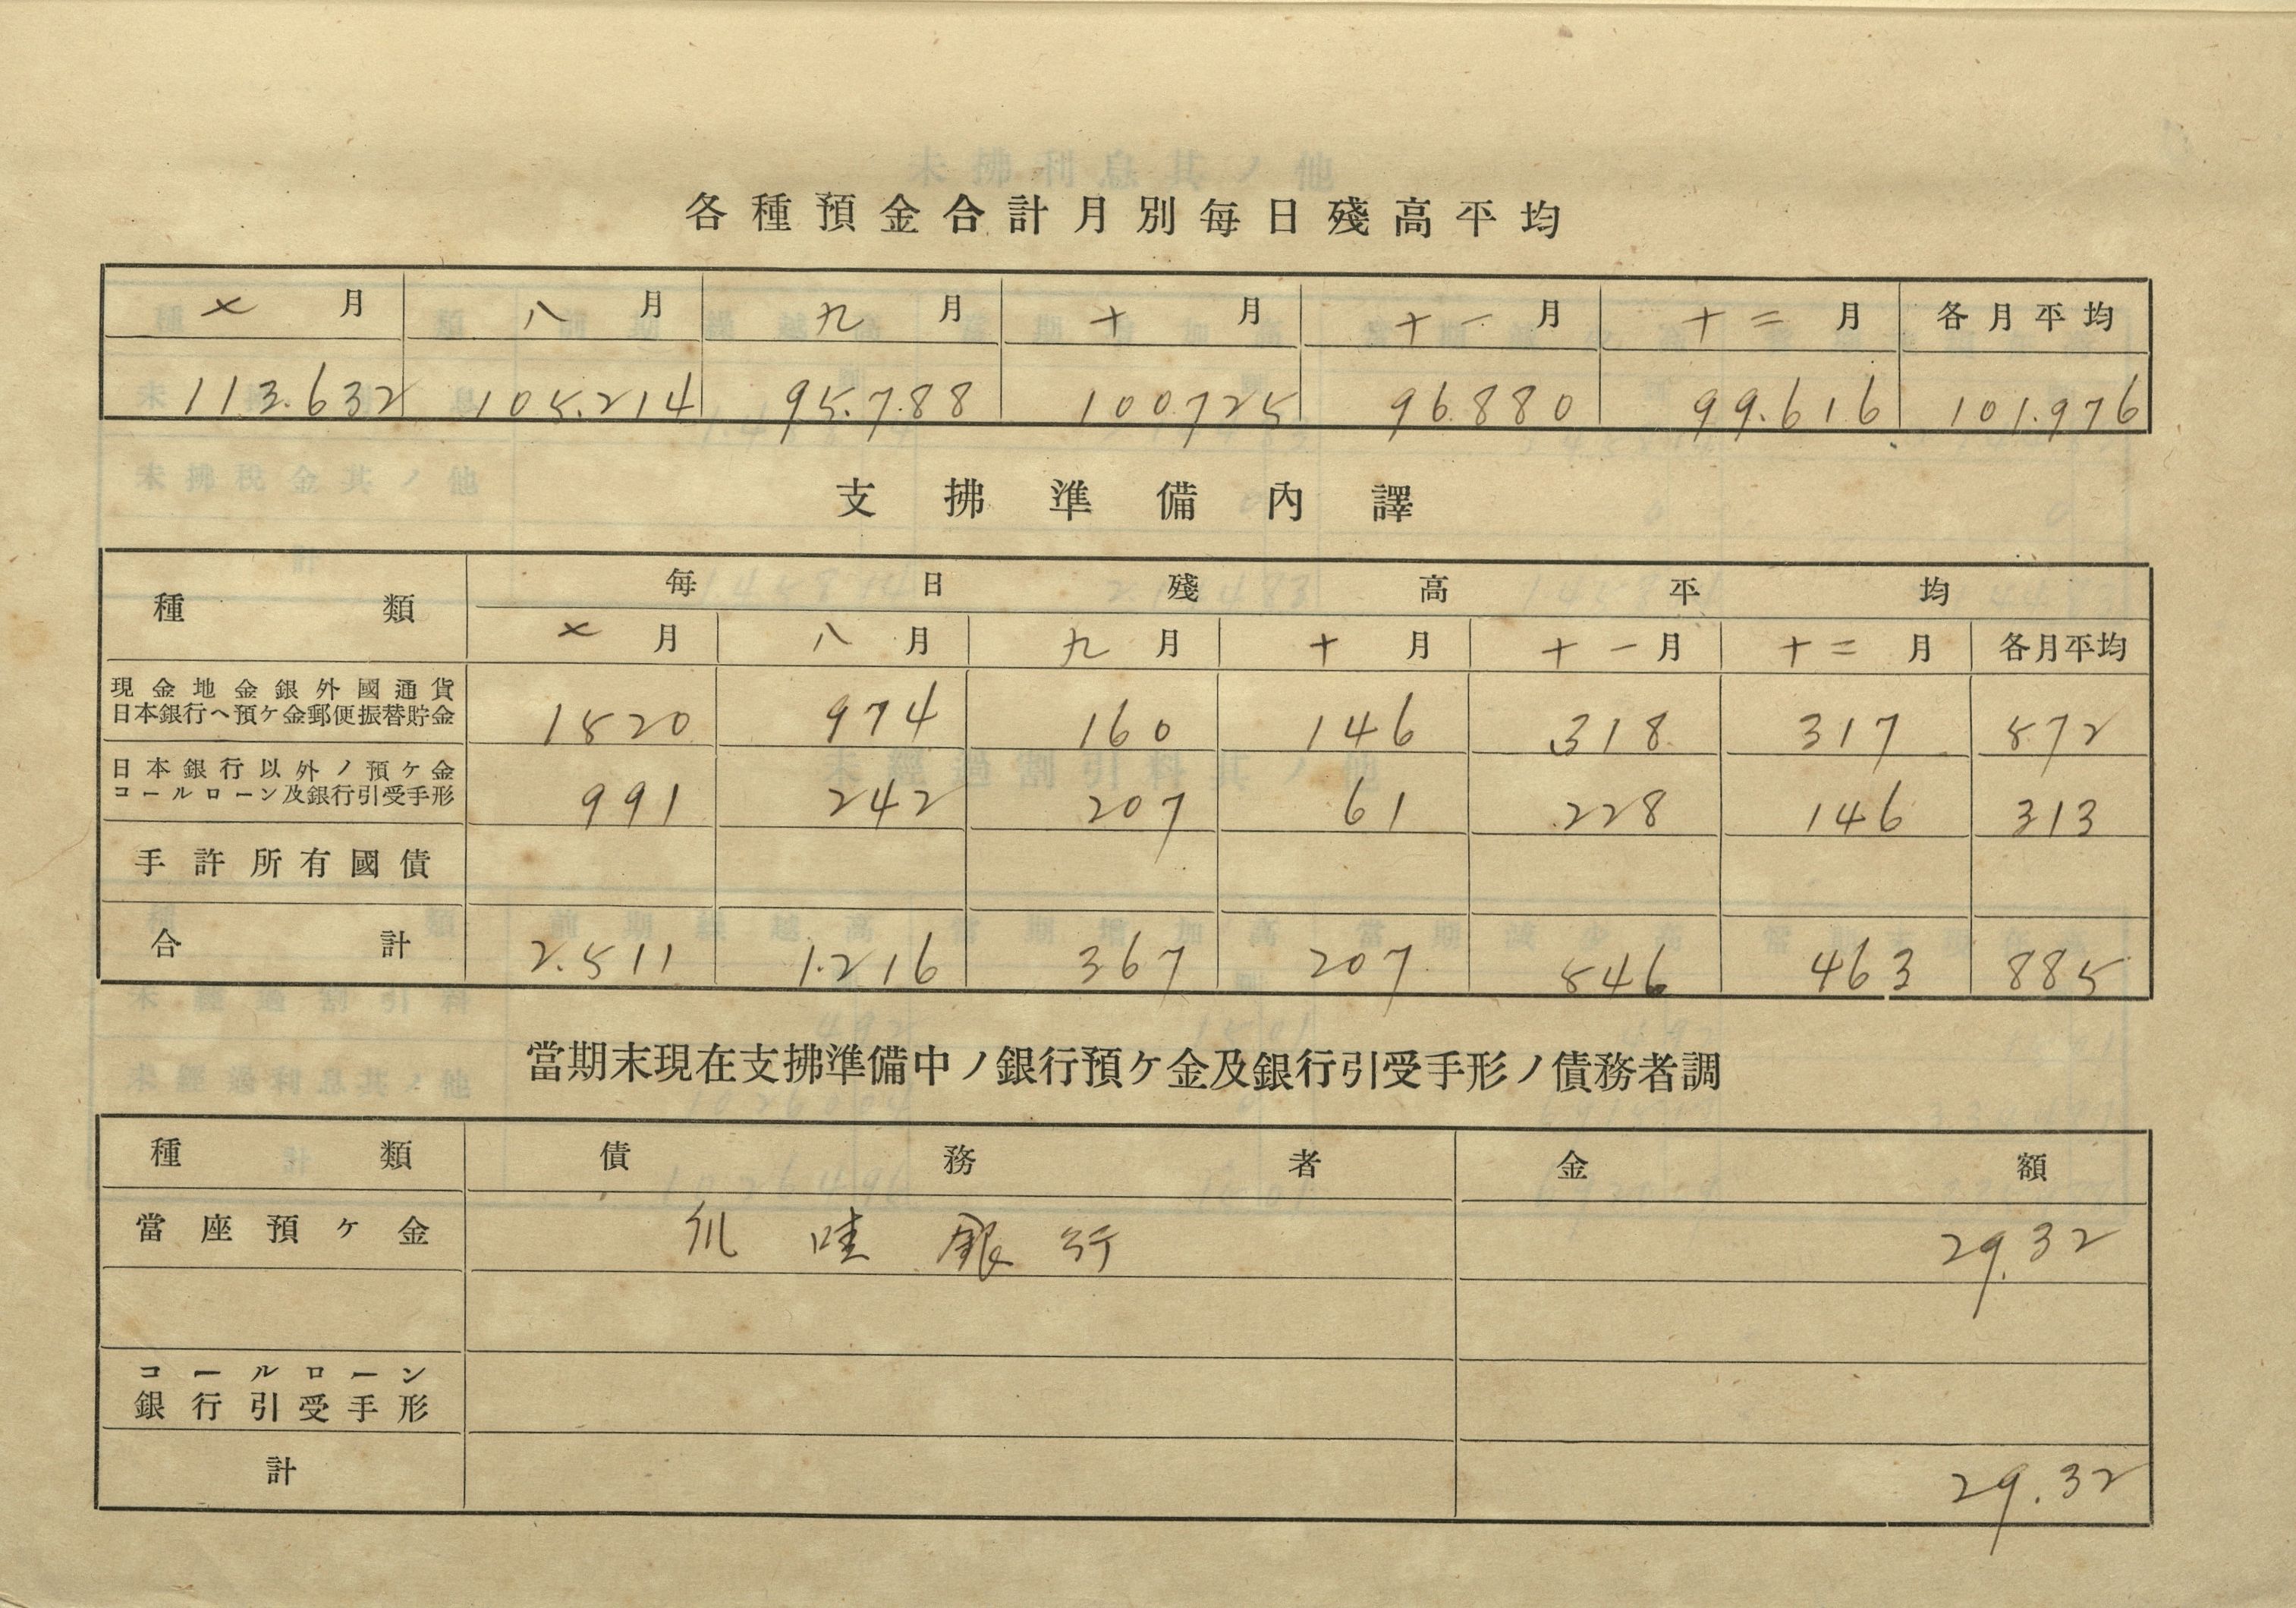 各種預金合計月別毎日殘高平均
七月 八月 九月 十月 十一月 十二月 各月平均
113.632 105.214 95.788 100725 96.880 99.616 101.976
支拂準備內譯
種類 毎日殘高平均
七月 八月 九月 十月 十一月 十二月 各月平均
現金地金銀外國通貨
日本銀行ヘ預ケ金郵便振替貯金 1520 974 160 146 318 317 572
日本銀行以外ノ預ケ金
コールローン及銀行引受手形 991 242 207 61 228 146 313
手許所有國債
合計 2.511 1.216 367 207 546 463 885
當期末現在支拂準備中ノ銀行預ケ金及銀行引受手形ノ債務者調
種類 債務者 金額
當座預ケ金 爪哇銀行 29.32
コールローン
銀行引受手形
計 29.32